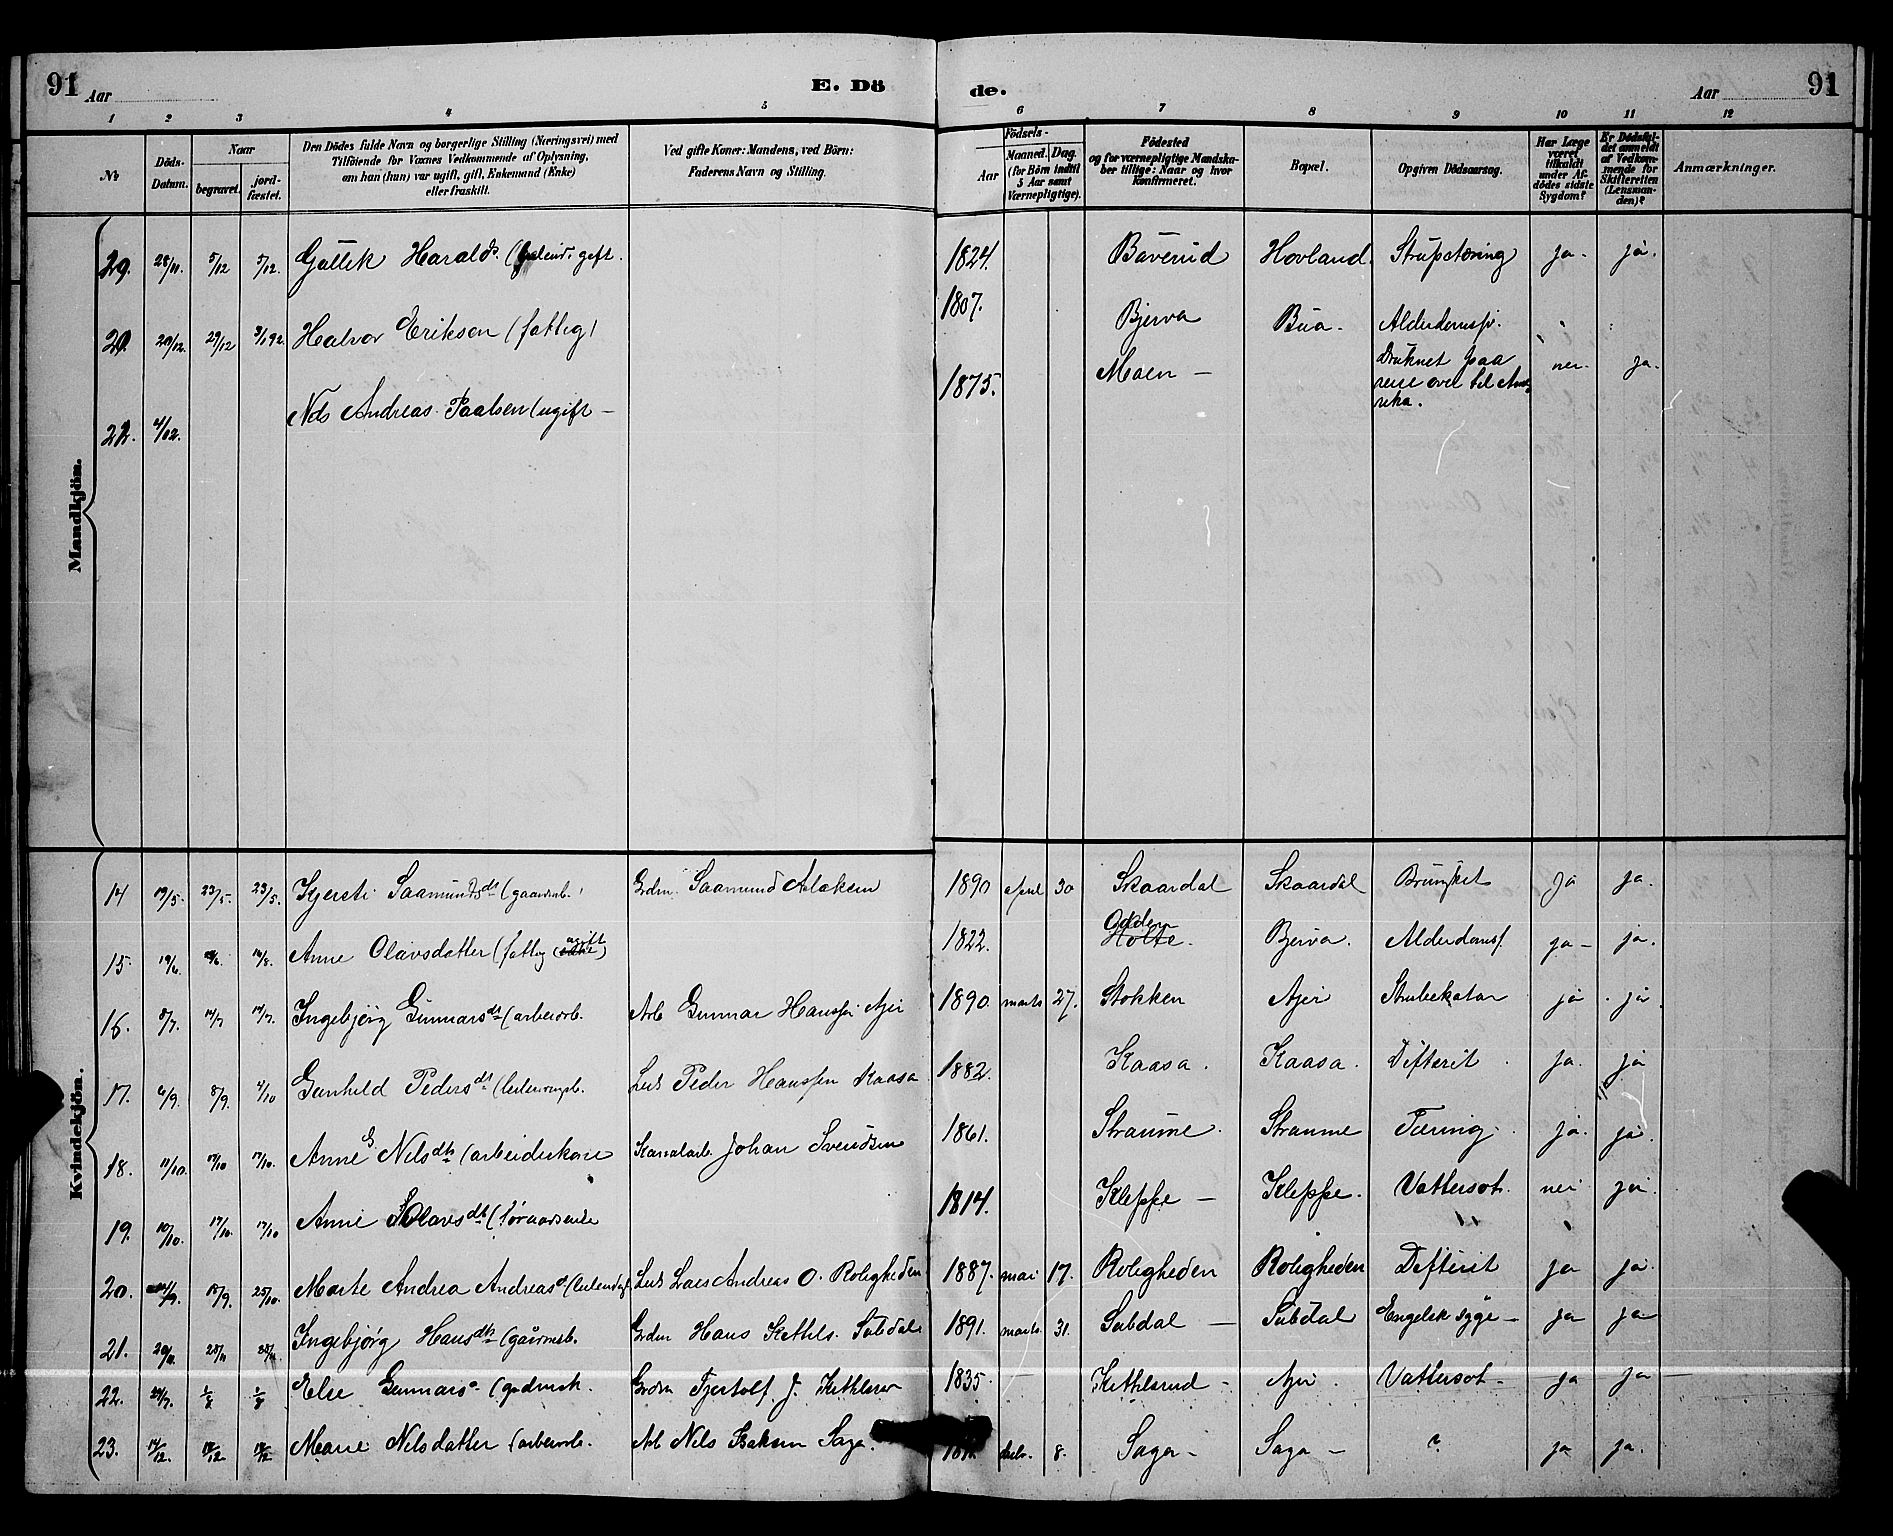 91 Aar E. Dö de. Aar 91
1 2 3 4 5 6 7 8 9 10 11 12
No
Döds-Datum.
Naar
begravet.
jord-fæstet.
Den Dödes fulde Navn og borgerlige Stilling (Næringsvei) med
Tilföiende for Voxnes Vedkommende af Oplysning,
om han (hun) var ugift, gift, Enkemand (Enke)
eller fraskilt.
Ved gifte Koner: Mandens, ved Börn:
Faderens Navn og Stilling.
Födsels-
Aar
Maaned. Dag.
(for Börn indtil
5 Aar samt
Værnepligtige).
Födested
og for værnepligtige Mandska-
ber tillige: Naar og hvor
Konfirmeret.
Bopæl.
Opgiven Dödsaarsag.
Har Læge
været
tilkaldt
under Af-
dödes sidste
Sygdom?
Er Dödsfal-
det anmeldt
af Vedkom-
mende for
Skifteretten
(Lensman-
den)?
Anmærkninger.
Mandkjön.
28/11. 5/12 5/12. Gullek Haralds. gift. 1824. Baverud Hovland. Strupetæring ja. ja.
20/12. 29/12 Halvor Eriksen (fattig) 1807. Bjerva Bua. Alderdomsf.
Nils Andreas Paalsen (ugift — 1875. Moen — Druknet paa
reise over til Ame
rika. nei. ja.
Kvindekjön.
14 19/5. 23/5. 23/5. Kjersti Saamundsdt (gaardmb. Grdm. Saamund Aslaksen 1890 april 30 Skaardal Skaardal Brunkit ja ja.
15. 19/6. Anne Olavsdatter (fattig ugift) 1822. Odden Holte. Bjerva. Alderdomsf. ja — ja.
16. 8/7. 14/7 14/7. Ingebjörg Gunnarsdt (arbeiderb. Arb Gunnar Hanssen Ajer 1890. marts 27. Stokken Ajer Strubekatar ja ja.
17. 6/9. 8/9. 4/10 Gunhild Pedersdt Peder Hanssen Kaasa 1882. Kaasa. Kaasa. Difterit ja. ja
18. 11/10. 17/10 17/10. Anne G. Nilsdtr (arbeiderkone Kanalarb. Johan Svendsen 1861. Straume. Straume Tæring. ja. ja.
19. 10/10. 17/10. 17/10 Anne Olavsdt (föraadsenke 1814. Kleppe — Kleppe. Vattersot. nei ja.
20. 15/9. 25/10. Marte Andrea Andreasd Lars Andreas O. Roligheden 1887. mai 17. Roligheden Roligheden Difterit ja ja.
21. 20/11. 28/11 28/11. Ingebjørg Hansdtr (gaardmb. Grdm Hans Kettils. Sübdal 1891. marts. 31. Sübdal — Sübdal Engelsk syge — ja ja
22. Else Gunnars (gaardmk. Grdm Tjostolf J. Kethlsen 1835 Kethlsrud — Ajer. Vattersot — ja ja
23. 14/12. Marie Nilsdatter (arbeiderb. Arb Nils Isaksen Saga. 8. Saga — Saga — ? ja ja.